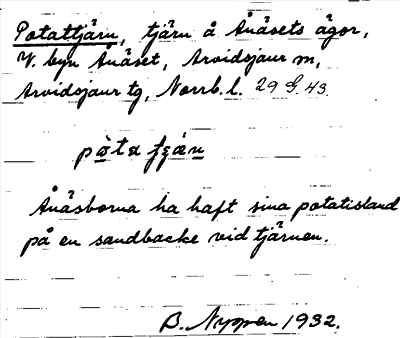 Potattjärn, tjärn å Ånäsets ägor,
V. byn Ånäset, Arvidsjaur sn,
Arvidsjaur tg, Norrb. l. 29 G. 43.
pòta tjæn
Ånäsborna ha haft sina potatisland
på en sandbacke vid tjärnen.
B. Nyppen 1932.